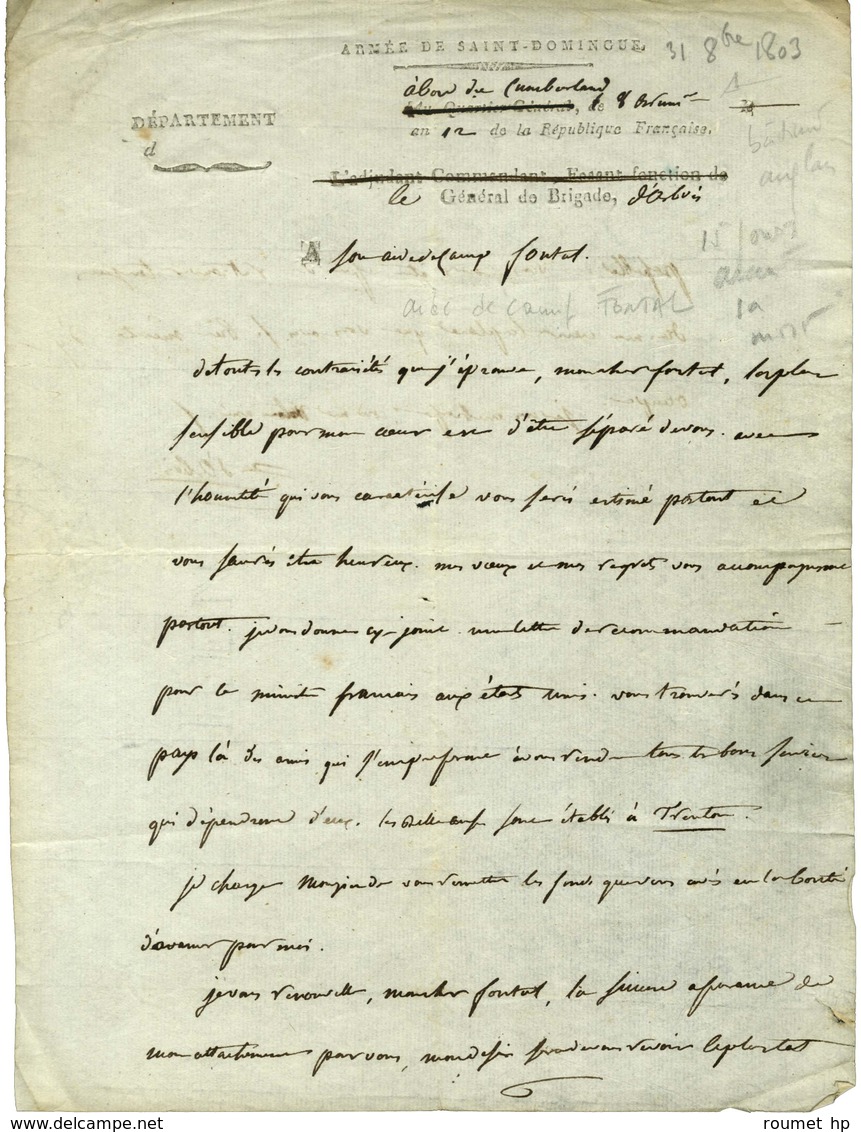 ARMÉE DE SAINT-DOMINGUE.
31 8bre 1803
à bord du Cumberland
Au Quartier Général, le 8 brum.re
DÉPARTEMENT
d
an 12 de la République Française.
bâtiment
anglais
L'adjudant Commandant, Fesant fonction de
le Général de Brigade, d'arbois
A son aide de Camp fontal.
15 jours
avant
sa
mort
aide de camp FONTAL
de touts les contrariétés que j'éprouve, mon cher fontal, la plus
sensible pour mon cœur est d'être séparé de vous. avec
l'honnêteté qui vous caractérise vous serés estimé partout et
vous saurés être heureux. mes vœux et mes regrets vous accompagnent
partout. je vous donne cy-joint une lettre de recommandation
pour le ministre francais aux états unis. vous trouverés dans ce
pays là des amis qui s'empresseront à vous rendre tous les bons services
qui dépendront d'eux. les sont établis à Trenton.
je charge de vous remettre les fonds que vous avés eu la bonté
d'avancer pour moi.
je vous renouvelle, mon cher fontal, la sincere assurance de
mon attachement pour vous, mon desir sera de vous revoir le plus tot
roumet hp